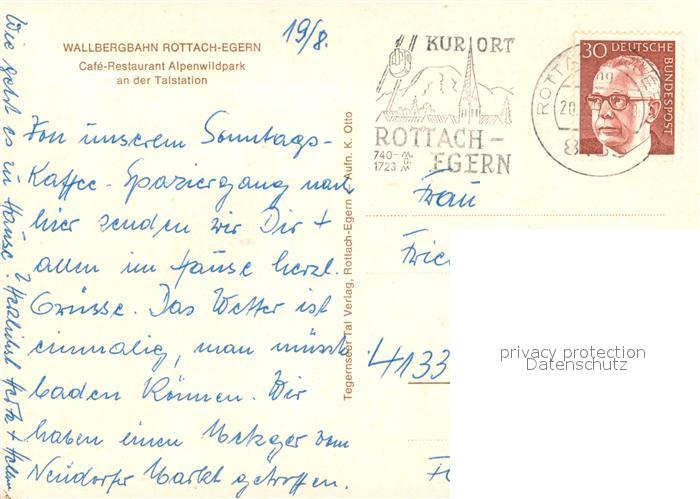 WALLBERGBAHN ROTTACH-EGERN
Café-Restaurant Alpenwildpark
an der Talstation
19/8.
Von unserem Sonntags-
Kaffee-Spaziergang nach
hier senden wir Dir +
allen im Hause herzl.
Grüsse. Das Wetter ist
einmalig, man müsst
baden können. Wir
haben einen Metzger vom
Neudorfer Markt getroffen.
Wie geht es zu Hause? Herzlichst Herta +
Tegernseer Tal Verlag, Rottach-Egern Aufn. K. Otto
KURORT
ROTTACH-
EGERN
740-
1723
M
ROTT
20.
30 DEUTSCHE
BUNDESPOST
Frau
4133
privacy protection
Datenschutz